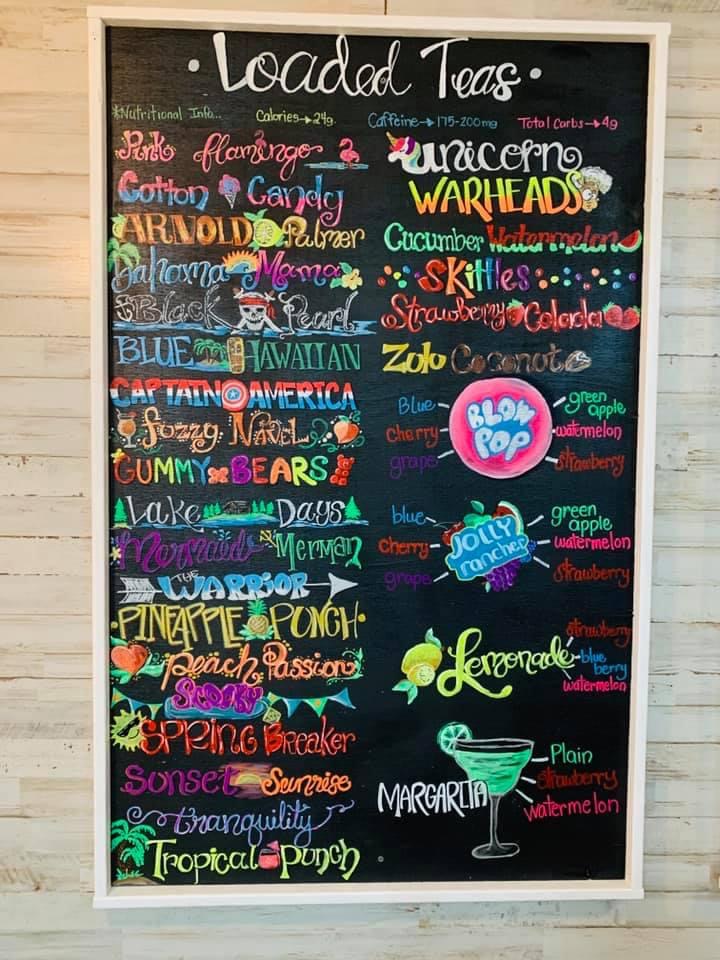 ·Loaded Teas·
*Nutritional Info... Calories→24g. Caffeine→175-200mg Total Carbs→4g
Pink flamingo
Cotton Candy
ARNOLD Palmer
Bahama Mama
Black Pearl
BLUE HAWAIIAN
CAPTAIN AMERICA
Fuzzy Navel
GUMMY BEARS
Lake Days
Mermaid Merman
THE WARRIOR
·PINEAPPLE PUNCH·
Peach Passion
SCOOBY
SPRING Breaker
Sunset Sunrise
Tranquility
Tropical punch
Unicorn
WARHEADS
Cucumber Watermelon
SKittles
Strawberry Colada
Zulu Coconut
BLOW POP
Blue
Cherry
grape
green apple
watermelon
Strawberry
JOLLY rancher
blue
Cherry
grape
green apple
watermelon
Strawberry
Lemonade
strawberry
blue berry
watermelon
MARGARITA
Plain
Strawberry
watermelon